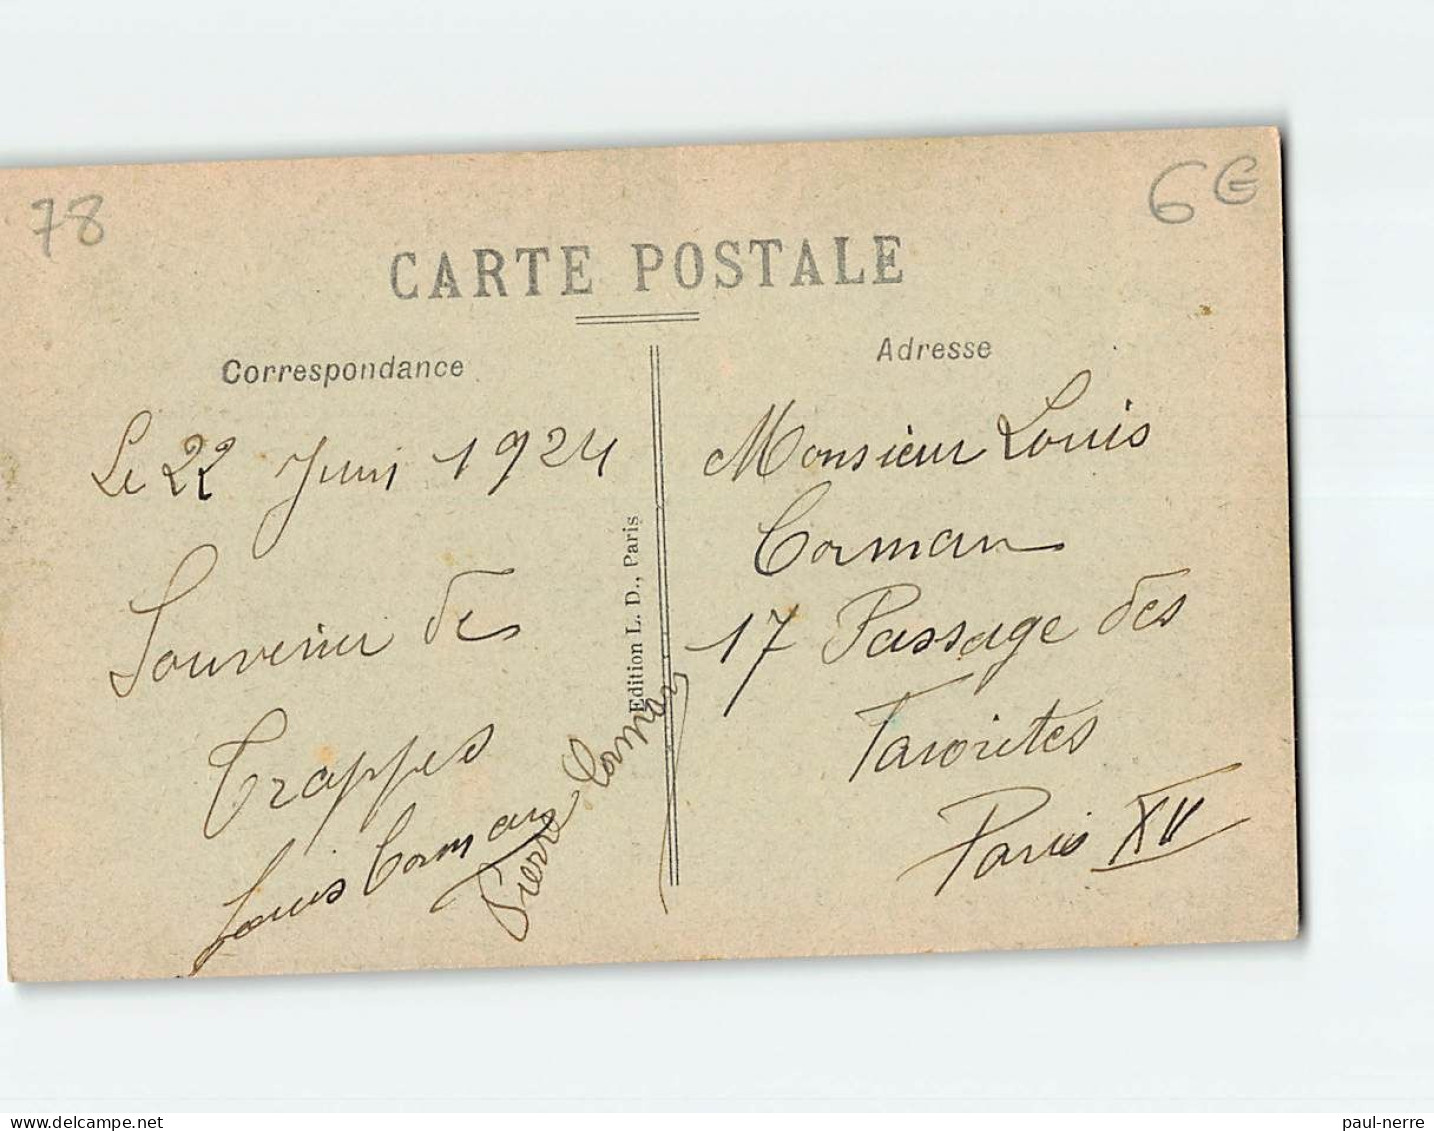 78
6€
CARTE POSTALE
Correspondance
Le 22 Juin 1924
Souvenir de
Trappes
Louis Corman
Pierre Corman
Edition L. D., Paris
Adresse
Monsieur Louis
Corman
17 Passage des
Favorites
Paris XV
paul-nerre